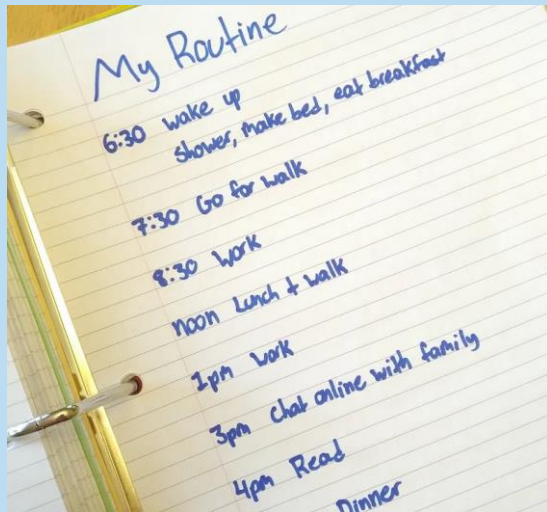 My Routine
6:30 wake up
shower, make bed, eat breakfast
7:30 Go for walk
8:30 Work
noon Lunch + walk
1pm work
3pm chat online with family
4pm Read
Dinner